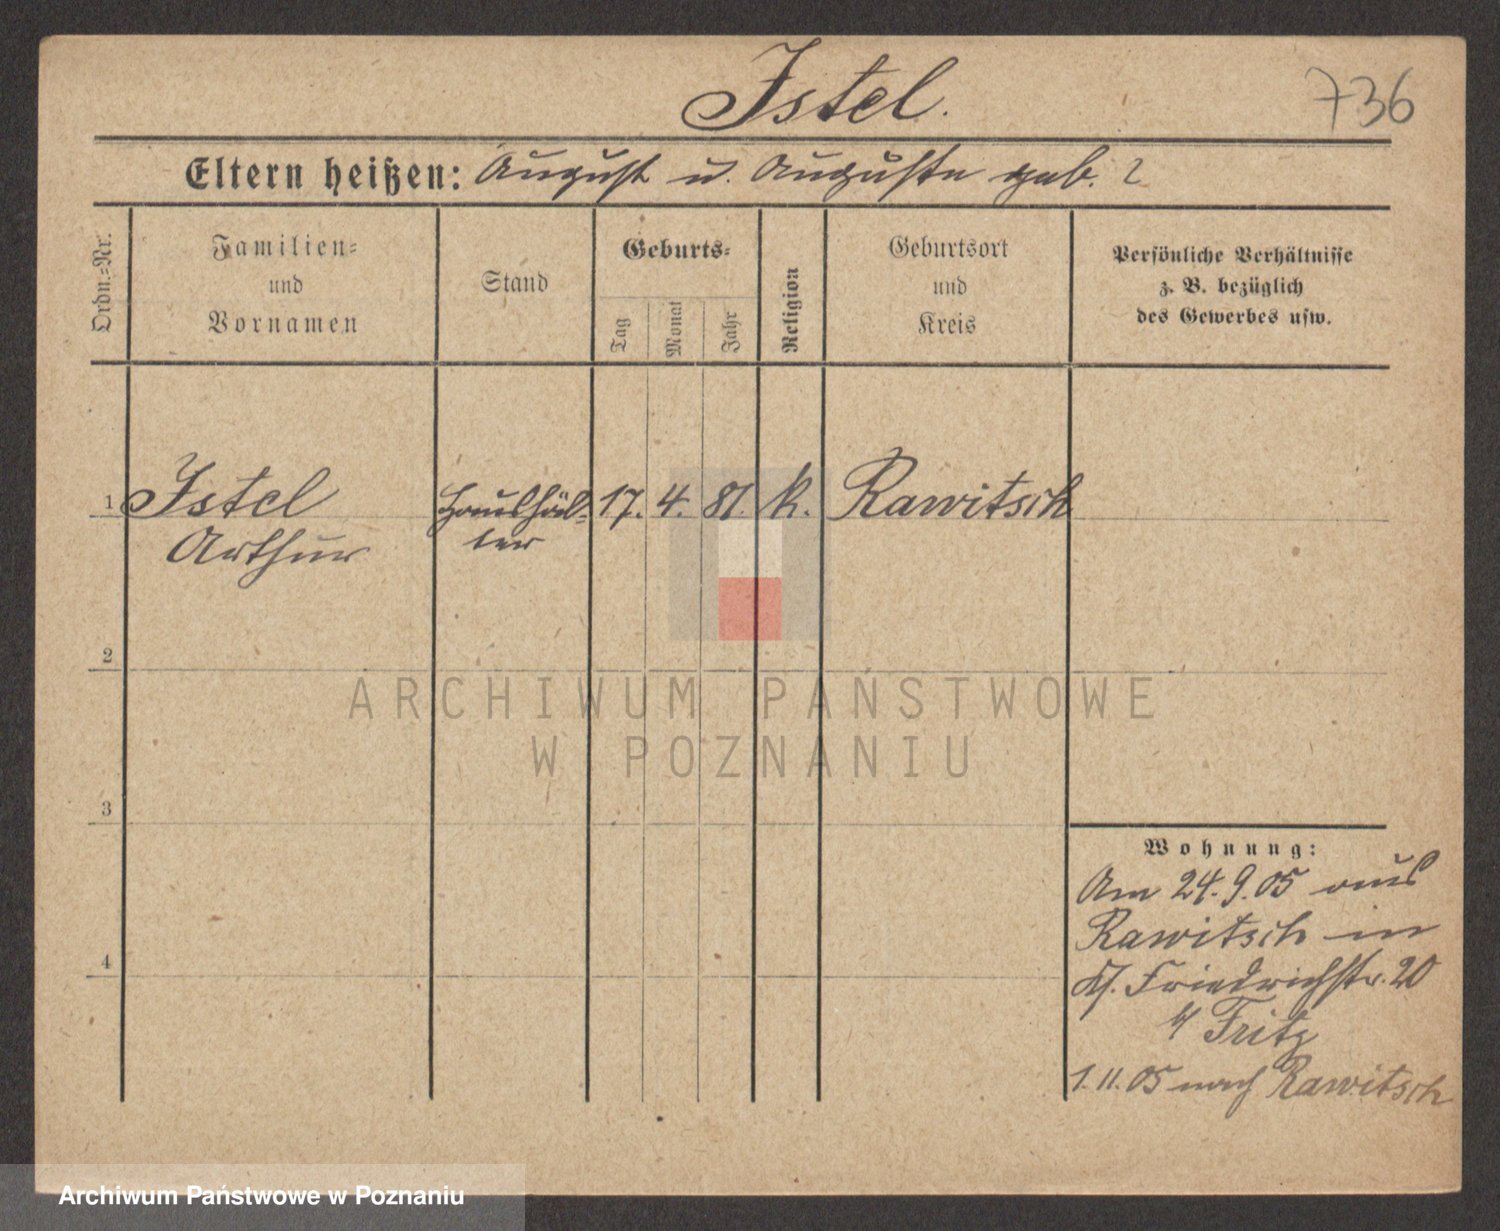 Istel.
736
Eltern heißen: August u. Auguste geb. ?
Ordn.-Nr.
Familien-
und
Vornamen
Stand
Geburts-
Tag
Monat
Jahr
Religion
Geburtsort
und
Kreis
Persönliche Verhältnisse
z. B. bezüglich
des Gewerbes usw.
1 Istel Haushäl- 17. 4. 81. k. Rawitsch
Arthur ter
2
ARCHIWUM PAŃSTWOWE
W POZNANIU
3
Wohnung:
Am 24.9.05 aus
Rawitsch in
Friedrichstr. 20
b/ Fritz
4
1.11.05 nach Rawitsch
Archiwum Państwowe w Poznaniu